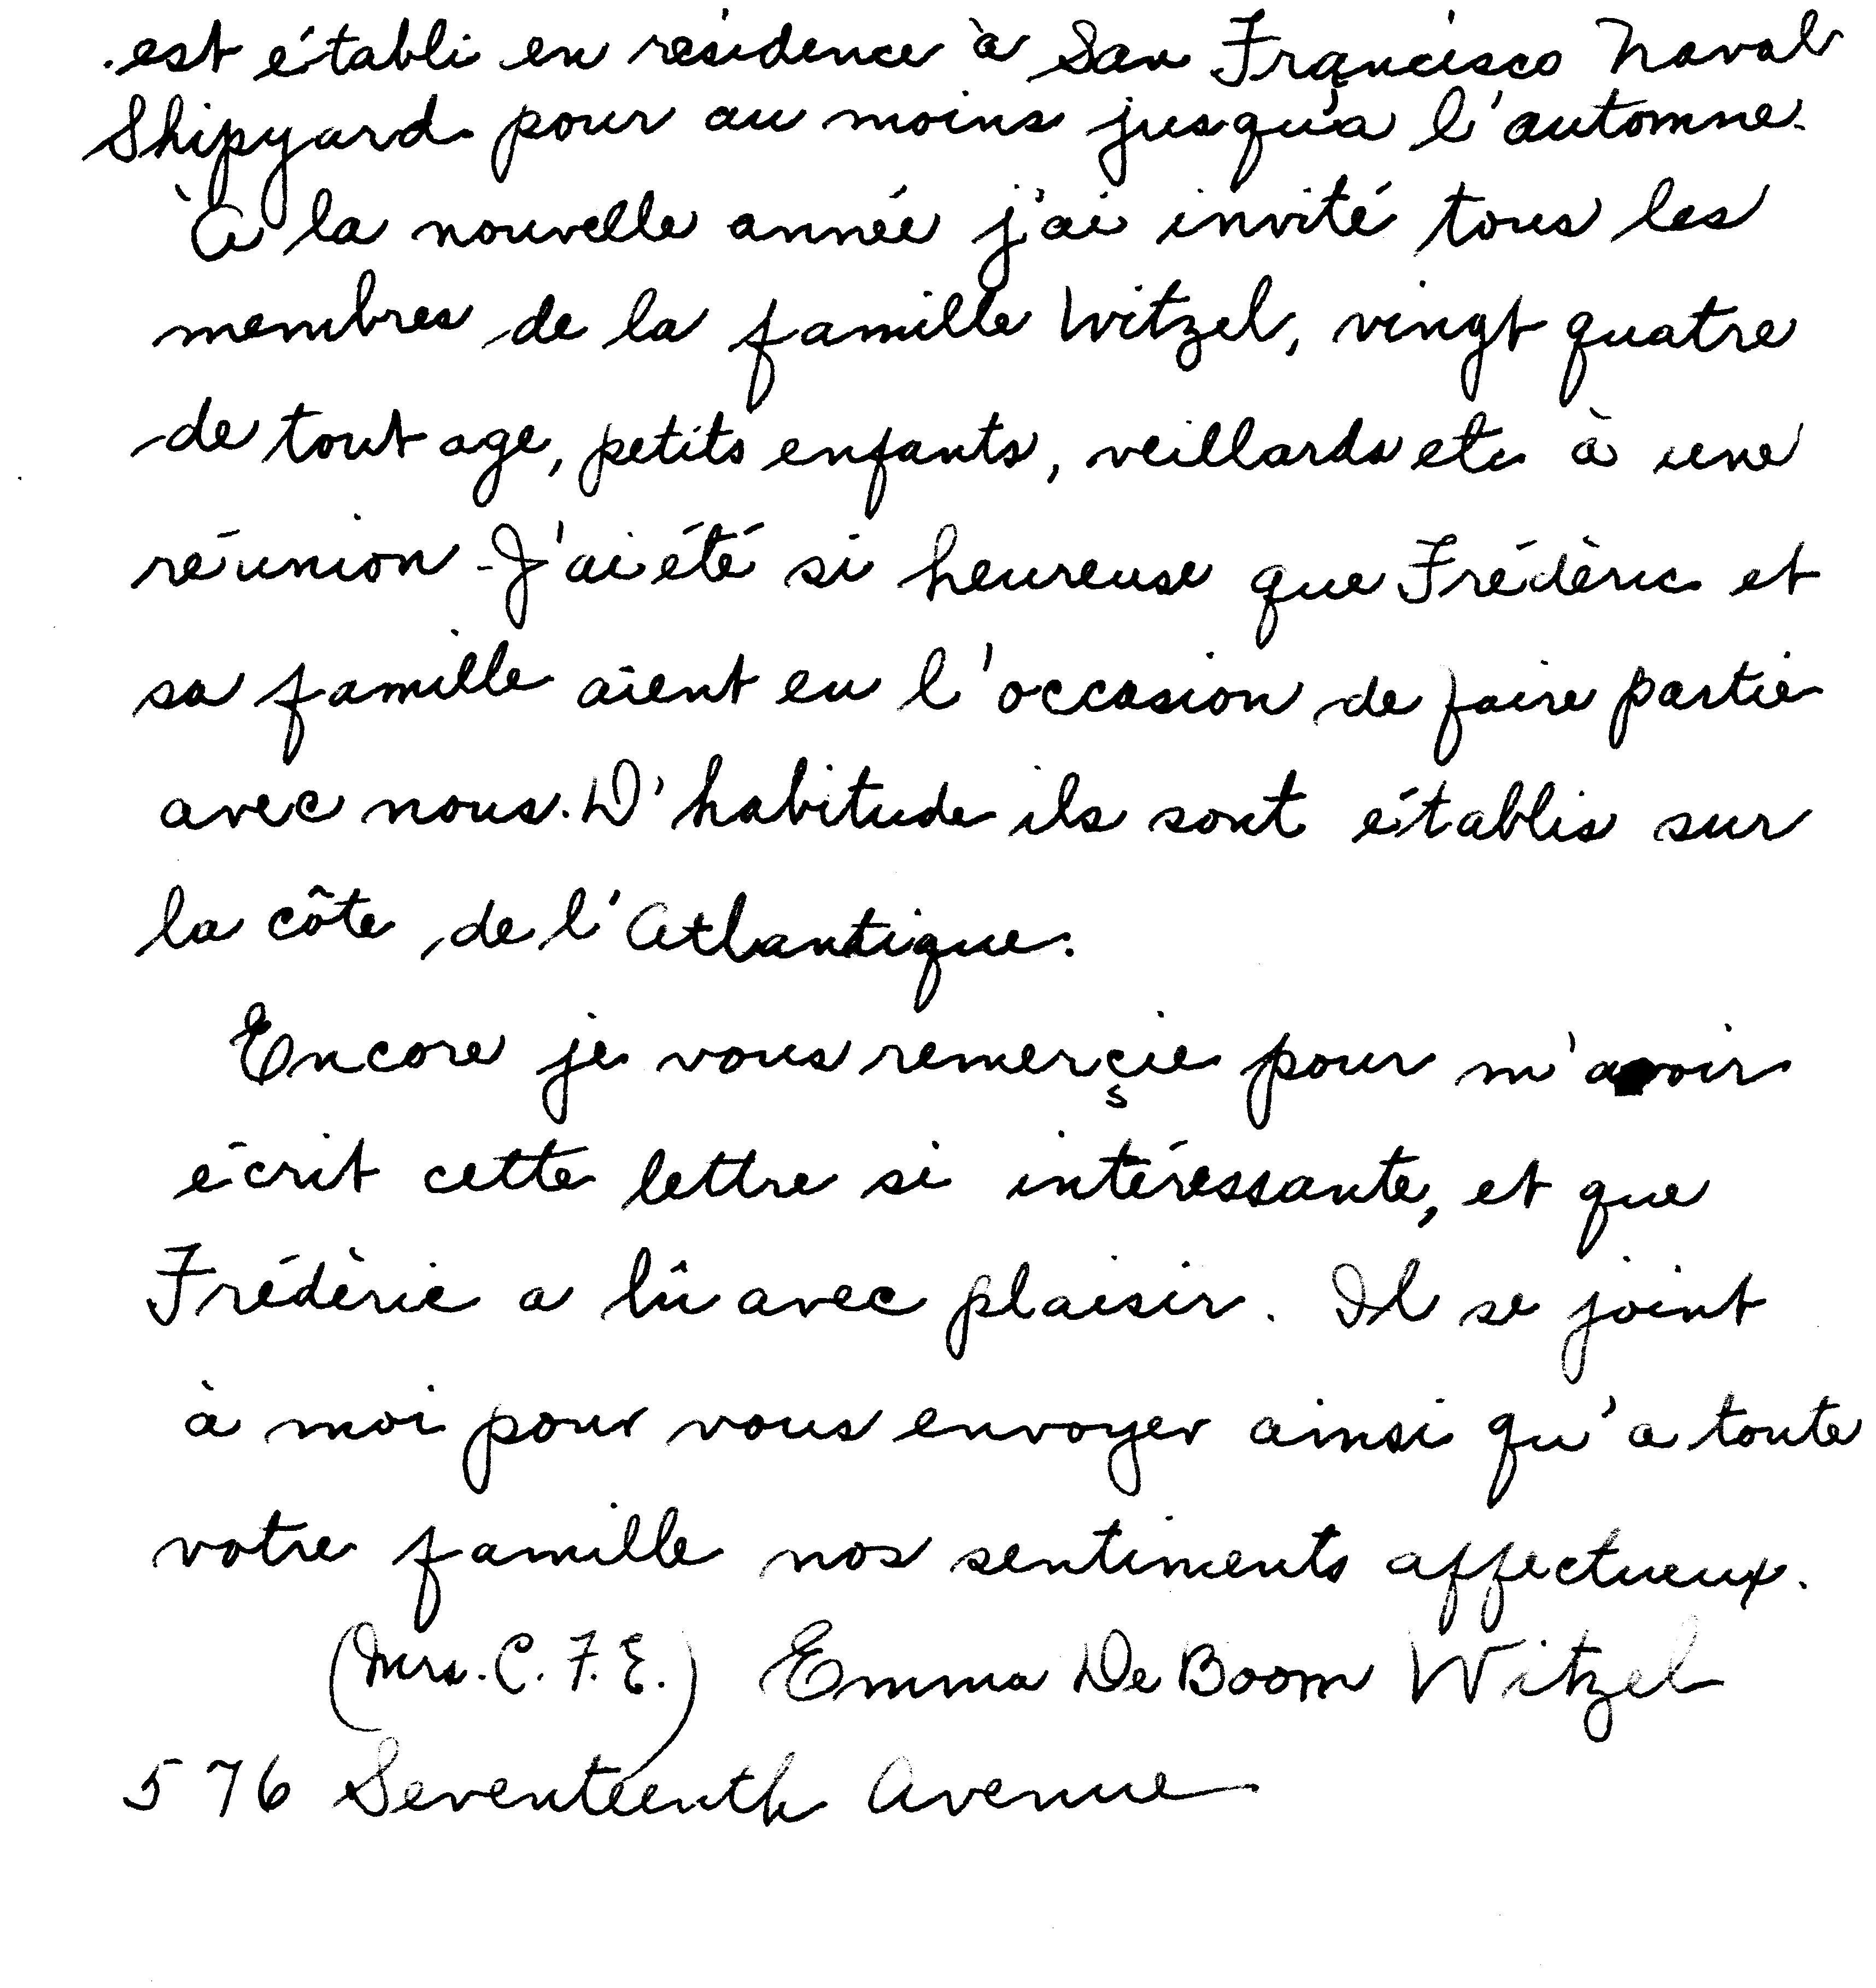 est établi en résidence à San Francisco Naval
Shipyard pour au moins jusqu'à l'automne.
À la nouvelle année j'ai invité tous les
membres de la famille Witzel, vingt quatre
de tout age, petits enfants, veillards etc à une
réunion - J'ai été si heureuse que Frédèric et
sa famille aient eu l'occasion de faire partie
avec nous. D'habitude ils sont établis sur
la côte de l'Atlantique.
Encore je vous remerçie pour m'avoir
écrit cette lettre si intéressante, et que
Frédèric a lû avec plaisir. Il se joint
à moi pour vous envoyer ainsi qu'a toute
votre famille nos sentiments affectueux.
(Mrs. C. F. E.) Emma De Boom Witzel
576 Seventeenth Avenue